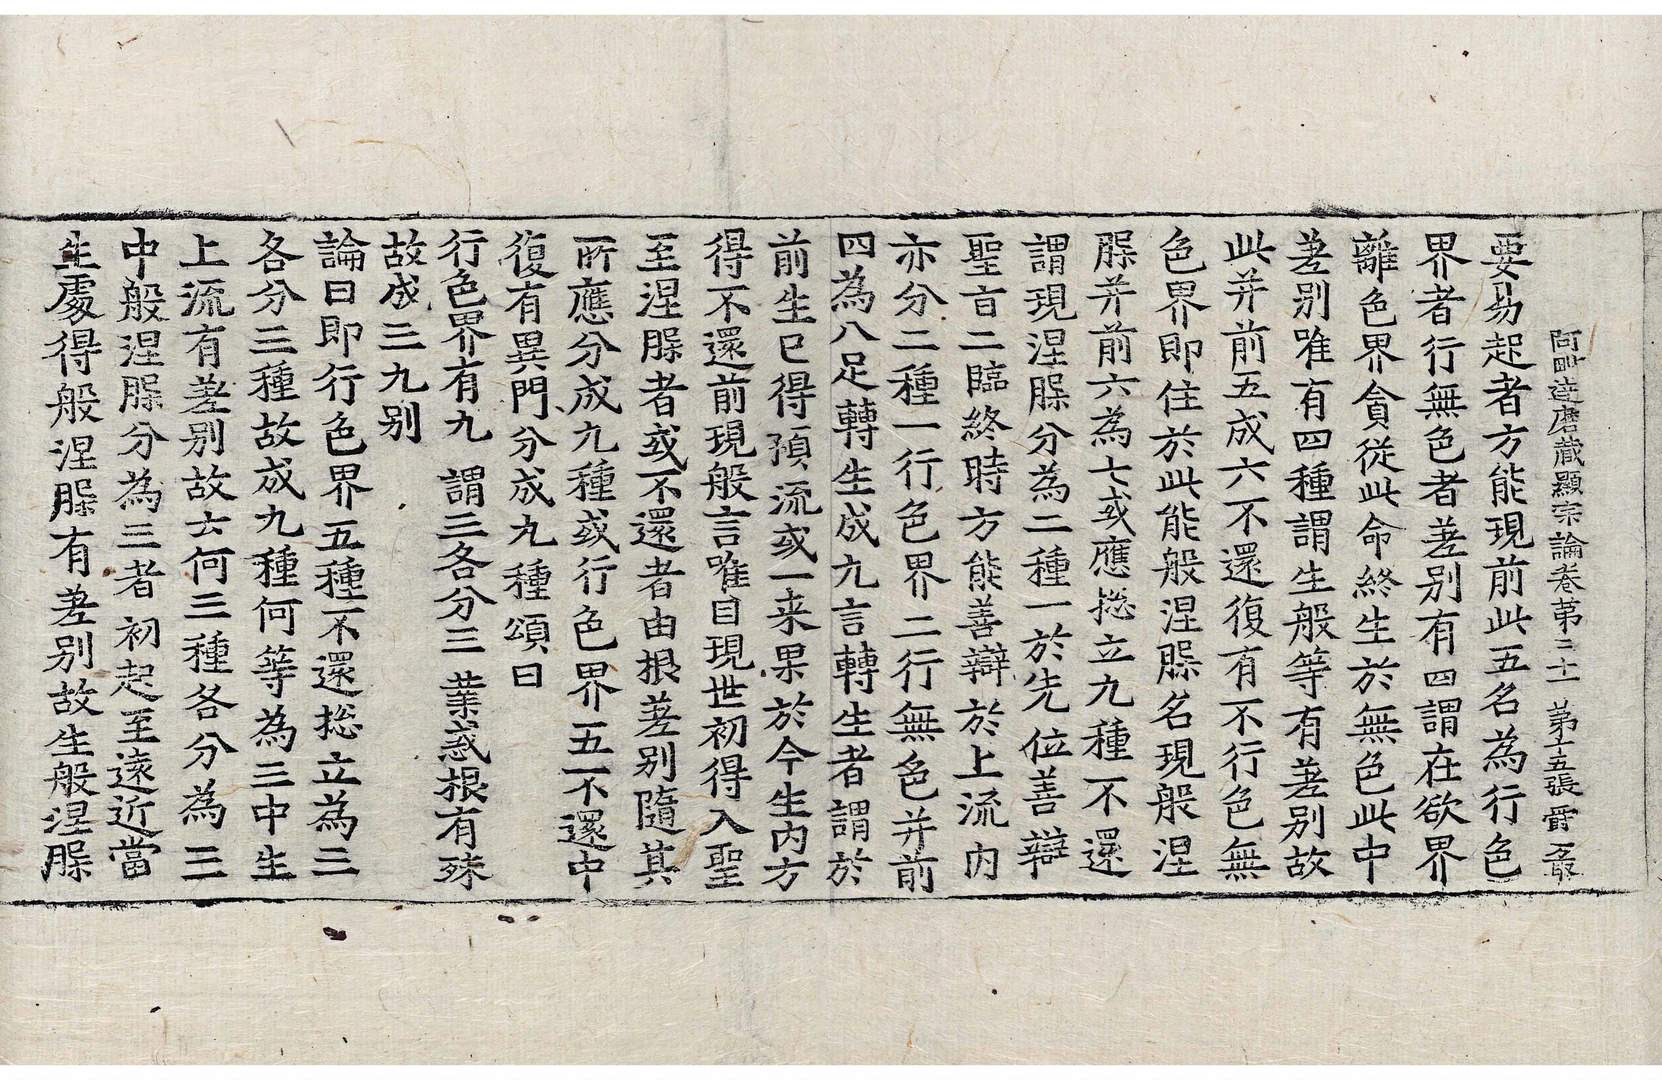 阿毗達磨藏顯宗論卷第三十一 第十五張 爵
要易起者方能現前此五名為行色
界者行無色者差別有四謂在欲界
離色界貪從此命終生於無色此中
差別唯有四種謂生般等有差別故
此并前五成六不還復有不行色無
色界即住於此能般涅槃名現般涅
槃并前六為七或應揔立九種不還
謂現涅槃分為二種一於先位善辯
聖旨二臨終時方能善辯於上流內
亦分二種一行色界二行無色并前
四為八足轉生成九言轉生者謂於
前生已得預流或一来果於今生內方
得不還前現般言唯目現世初得入聖
至涅槃者或不還者由根差別隨其
所應分成九種或行色界五不還中
復有異門分成九種頌曰
行色界有九 謂三各分三 業惑根有殊
故成三九別
論曰即行色界五種不還揔立為三
各分三種故成九種何等為三中生
上流有差別故云何三種各分為三
中般涅槃分為三者初起至遠近當
生處得般涅槃有差別故生般涅槃